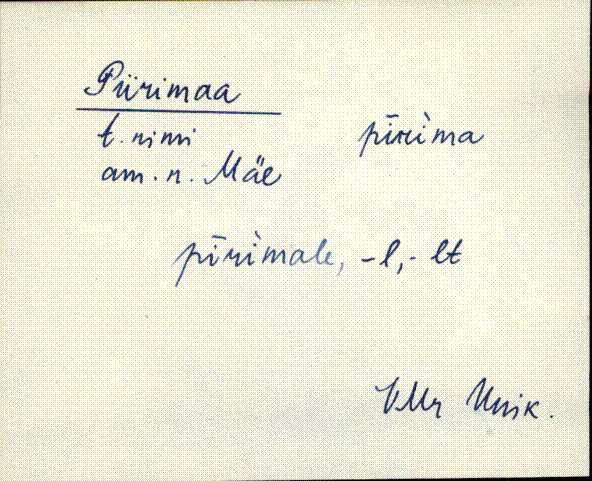 Piirimaa
t. nimi pīri̬ma
am. n. Mäe
pīri̬male, -l, -lt
VMr Uuik.